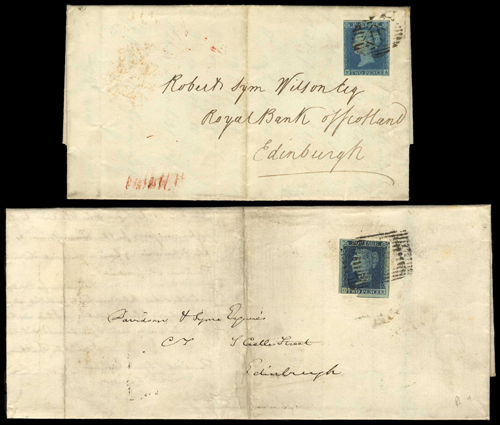 TWO PENCE
Robert Sym Wilson Esq
Royal Bank of Scotland
Edinburgh
TWO PENCE
Davidson & Syme Esquires
5 Castle Street
Edinburgh